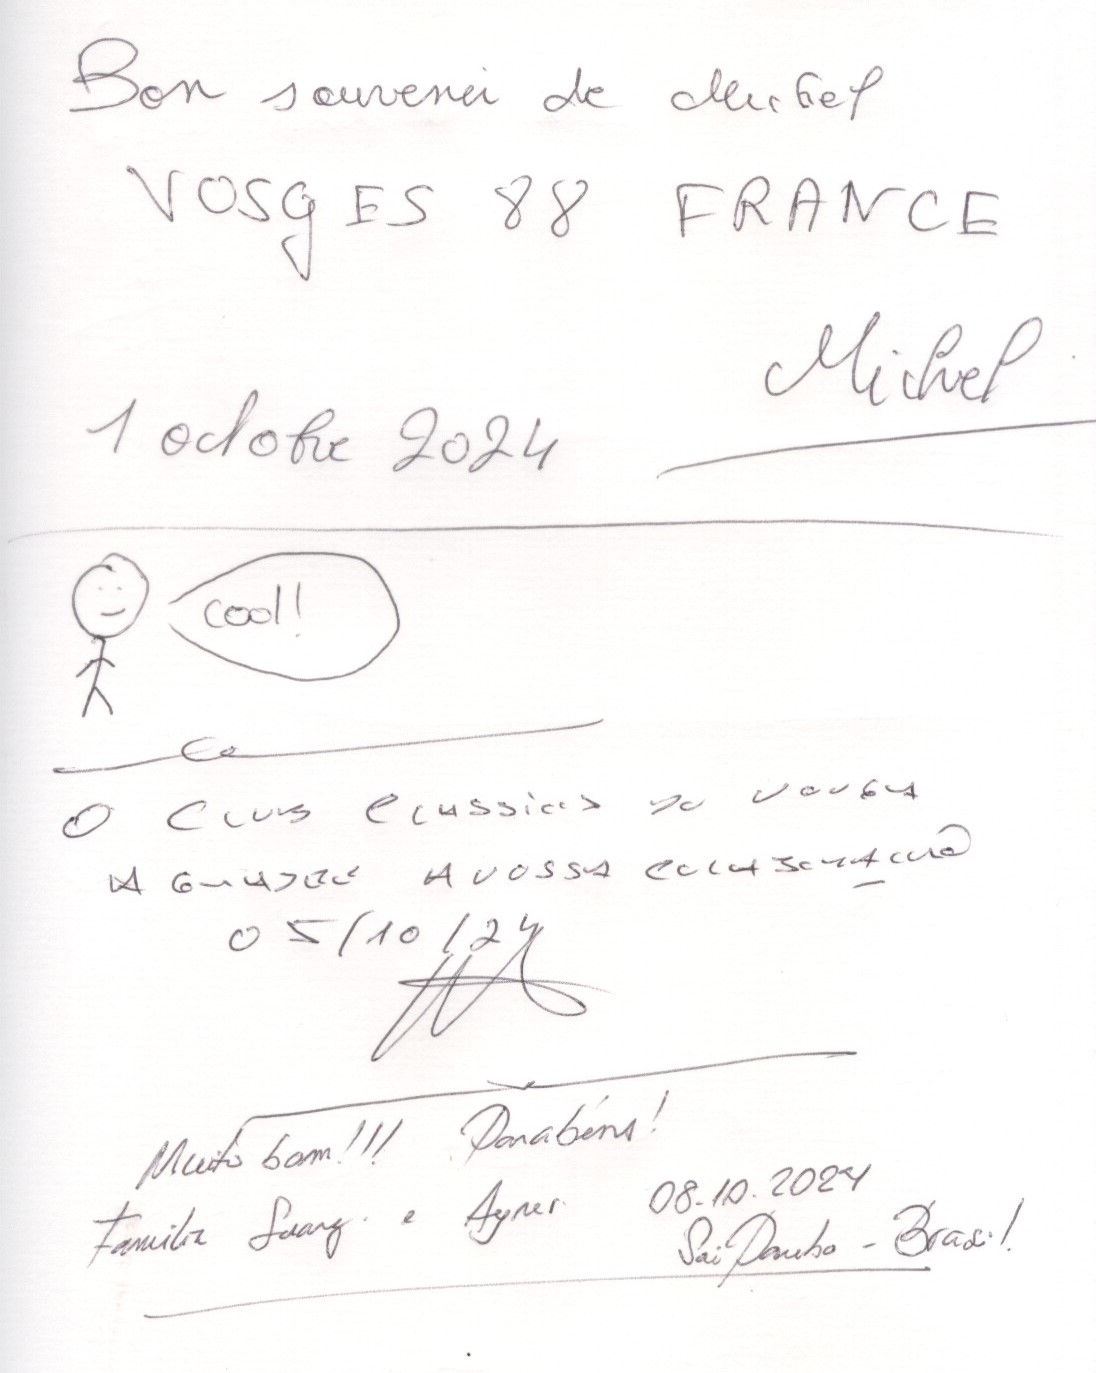 Bon souvenir de Michel
VOSGES 88 FRANCE
Michel
1 octobre 2024
cool!
O CLUB CLASSICOS DO VOUGA
AGRADECE A VOSSA COLABORAÇÃO
05/10/24
Muito bom!!! Parabéns!
Familia e
08.10.2024
São Paulo - Brasil